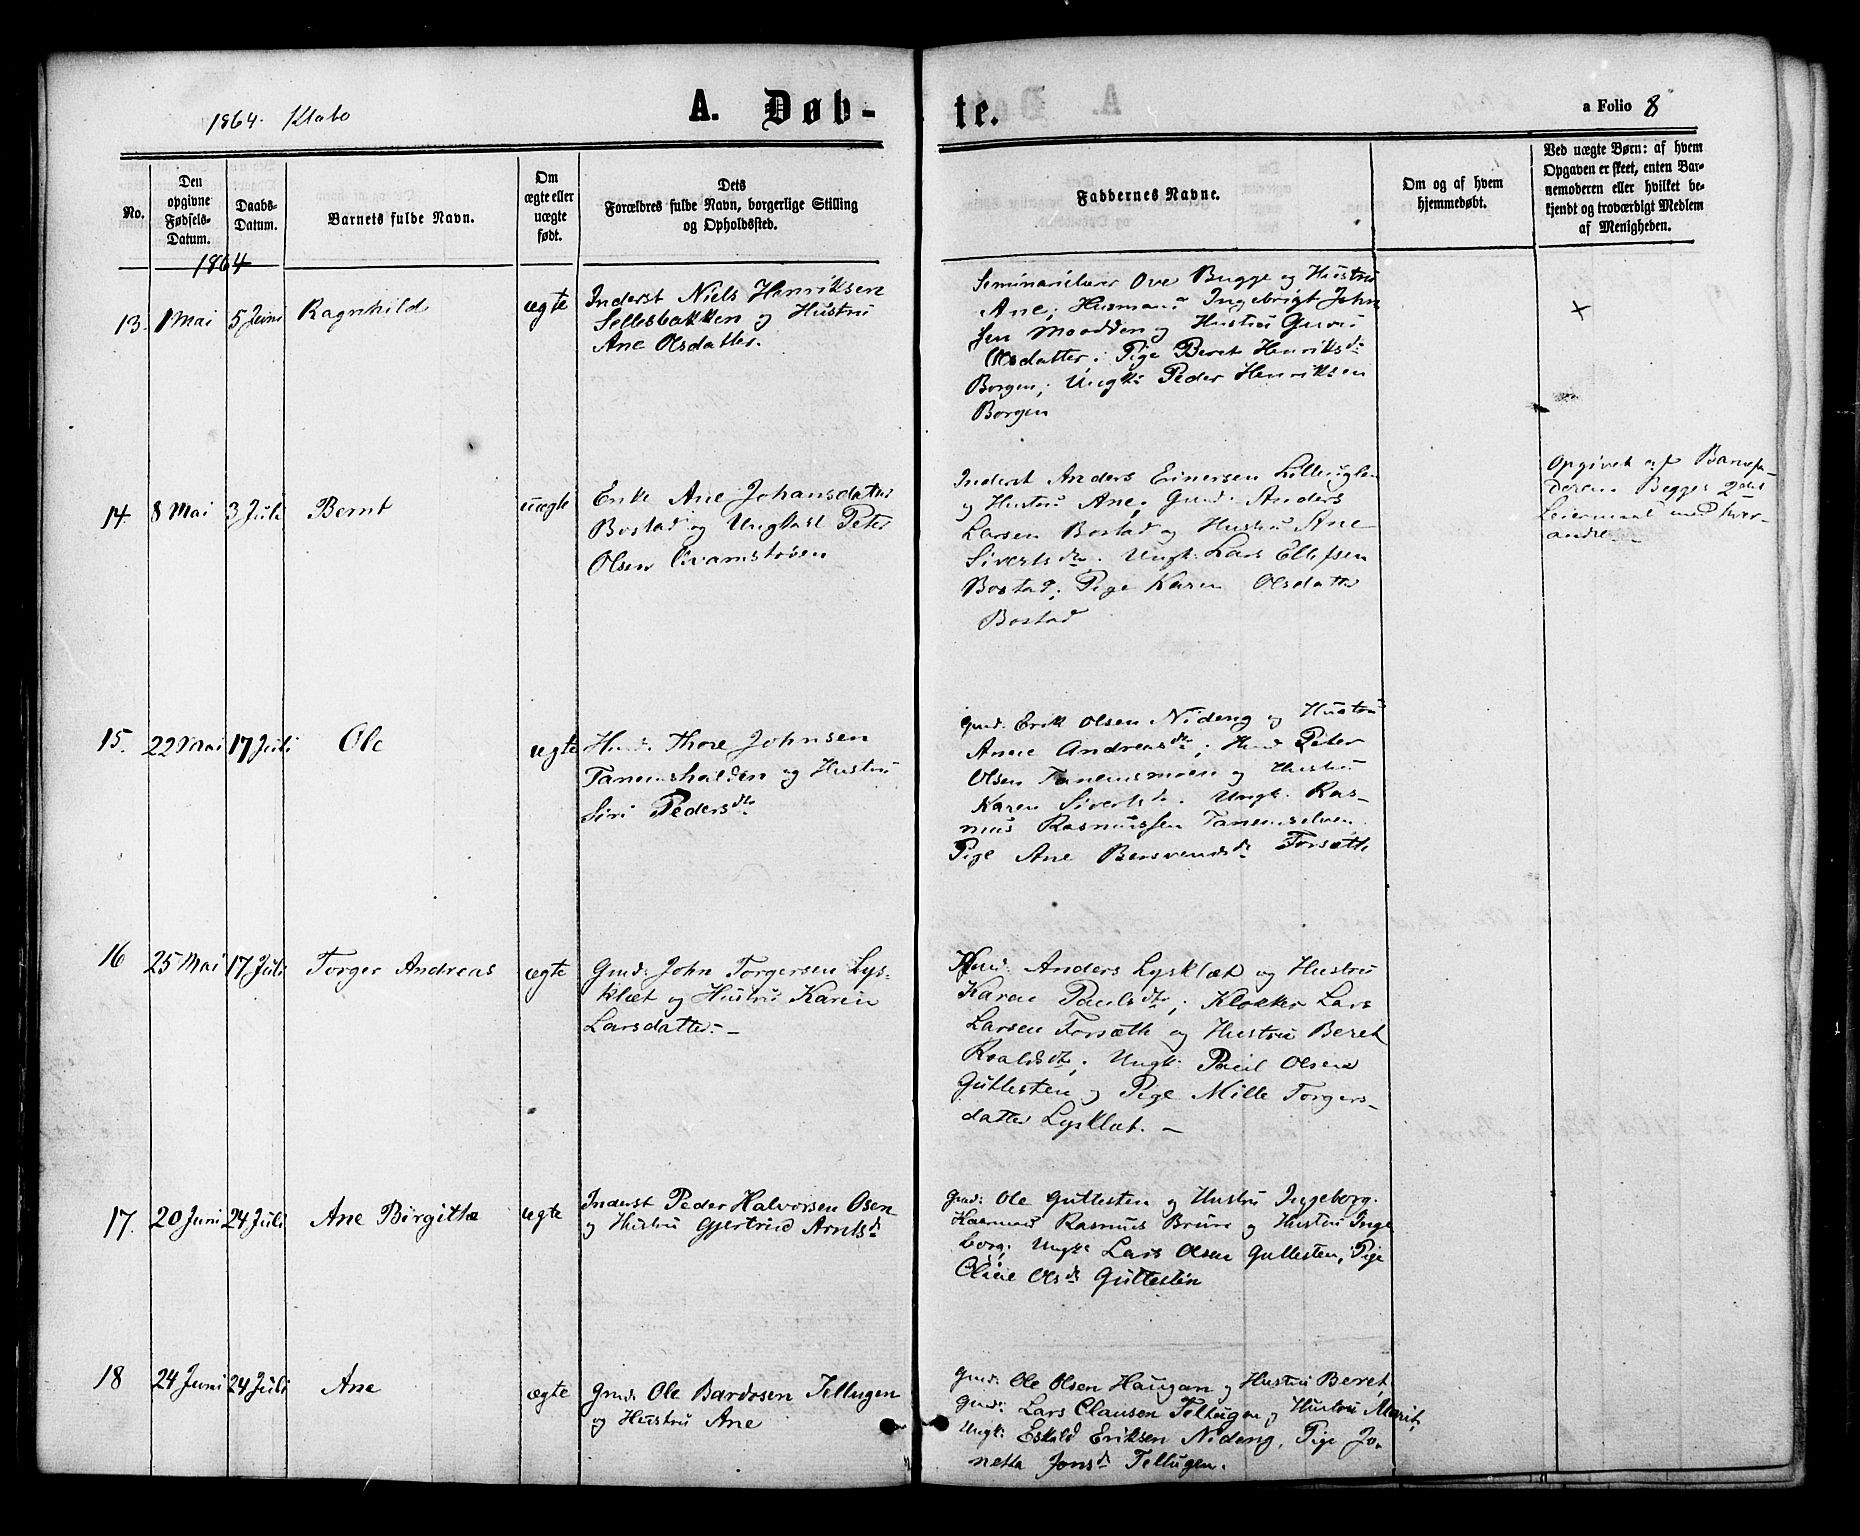 1864. Klæbo
A. Døbte.
a Folio 8
No.
Den opgivne Fødsels-Datum.
Daabs-Datum.
Barnets fulde Navn.
Om ægte eller uægte født.
Dets Forældres fulde Navn, borgerlige Stilling og Opholdssted.
Faddernes Navne.
Om og af hvem hjemmedøbt.
Ved uægte Børn: af hvem Opgaven er skeet, enten Barnemoderen eller hvilket bekjendt og troværdigt Medlem af Menigheden.
1864
13. 1 Mai 5 Juni Ragnhild ægte
Inderst Niels Henriksen
Sellesbakken og Hustru
Ane Olsdatter.
Seminarielærer Ove Bugge og Hustru
Ane; Husmand Ingebrigt John
sen Moodden og Hustru Guru
Olsdatter; Pige Beret Henriksdr
Borgen; Ungk: Peder Henriksen
Borgen
14. 8 Mai 3 Juli Bernt uægte
Enke Ane Johansdatter
Bostad og Ungkarl Peter
Olsen Qvamstøen
Inderst Anders Einersen Lilleuglen
og Hustru Ane; Gmd: Anders
Larsen Bostad og Hustru Ane
Sivertsdr. Ungk: Lars Ellefsen
Bostad; Pige Karen Olsdatter
Bostad
Opgivet af Barnefa-
deren. Begges 2det
Leiermaal med hver-
andre.-
15. 22 Mai 17 Juli Ole ægte
Husmd: Thore Johnsen
Tanemshalden og Hustru
Siri Pedersdtr
Gmd: Erik Olsen Nideng og Hustru
Anne Andreasdtr; Husmd Peter
Olsen Tanemsmoen og Hustru
Karen Sivertsdr. Ungk: Ras-
mus Rasmussen Tanemselven.
Pige Ane Bersvendsdr Forsæth
16 25 Mai 17 Juli Torger Andreas ægte
Gmd: John Torgersen Lys-
klæt og Hustru Karen
Larsdatter.-
Husmd: Anders Lysklæt og Hustru
Karen Paulsdtr; Klokker Lars
Larsen Forsæth og Hustru Beret
Roaldsdtr; Ungk: Paul Olsen
Gullesten og Pige Mille Torgers-
datter Lysklæt. -
17. 20 Juni 24 Juli Ane Birgitha ægte
Inderst Peder Halvorsen Osen
og Hustru Gjertrud Arntsdr
Gmd: Ole Gullesten og Hustru Ingeborg.
Kaarmand Rasmus Bruun og Hustru Inge
borg; Ungk: Lars Olsen Gullesten, Pige
Oline Olsdr Gullesten
18 24 Juni 24 Juli Ane ægte
Gmd: Ole Bardosen Tellugen
og Hustru Ane
Gmd: Ole Olsen Haugan og Hustru Beret,
Gmd: Lars Clausen Tellugen og Hustru Marit,
Ungk: Eskild Eriksen Nideng, Pige Jo-
netta Jonsdr Tellugen.